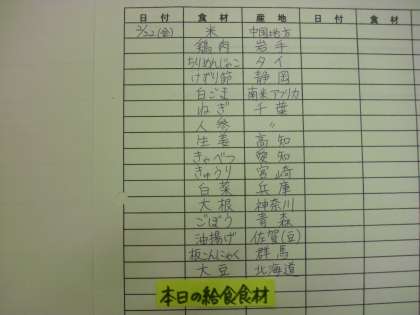 日付 食材 産地 日付 食材
2/22(金) 米 中国地方
鶏肉 岩手
ちりめんじゃこ タイ
けずり節 静岡
白ごま 南米アフリカ
ねぎ 千葉
人参 〃
生姜 高知
きゃべつ 愛知
きゅうり 宮崎
白菜 兵庫
大根 神奈川
ごぼう 青森
油揚げ 佐賀(豆)
板こんにゃく 群馬
大豆 北海道
本日の給食食材